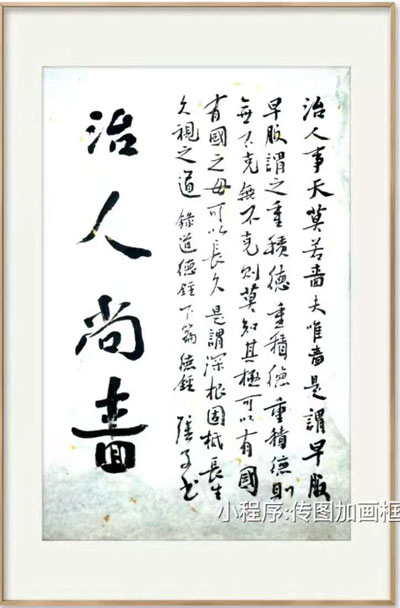 治人事天莫若嗇夫唯嗇是謂早服
早服謂之重積德重積德重積德則
無不克無不克則莫知其極可以有國
有國之母可以長久是謂深根固柢長生
久視之道 錄道德經下篇德經
治人尚嗇
小程序:传图加画框